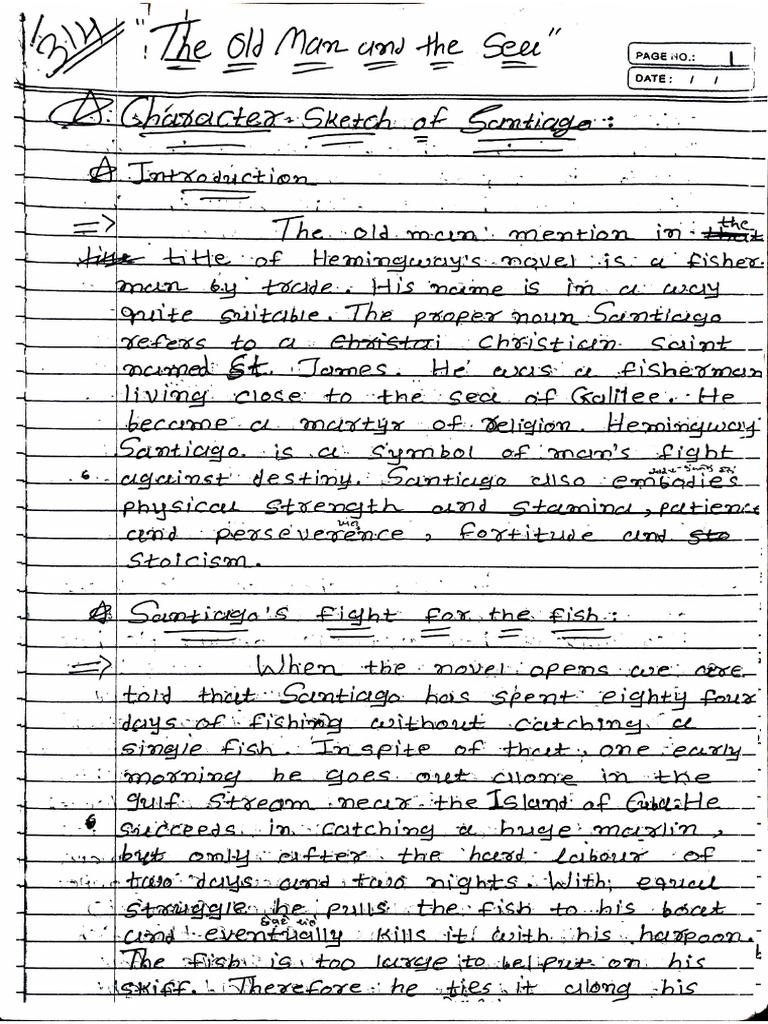 "The Old Man and the Sea"
PAGE NO.: 1
DATE: / /
Character-Sketch of Santiago:
Introduction
=> The old man mention in the
title of Hemingway's novel is a fisher-
man by trade. His name is in a way
quite suitable. The proper noun Santiago
refers to a Christian Saint
named St. James. He was a fisherman
living close to the sea of Galilee. He
became a martyr of religion. Hemingway
Santiago is a symbol of man's fight
against destiny. Santiago also embodies
physical strength and stamina, patience
and perseverence, fortitude and
stoicism.
Santiago's fight for the fish:
=> When the novel opens we are
told that Santiago has spent eighty four
days of fishing without catching a
single fish. In spite of that, one early
morning he goes out alone in the
gulf stream near the Island of Cuba. He
succeeds in catching a huge marlin,
but only after the hard labour of
two days and two nights. With equal
struggle he pulls the fish to his boat
and eventually kills it with his harpoon.
The fish is too large to be put on his
skiff. Therefore he ties it along his